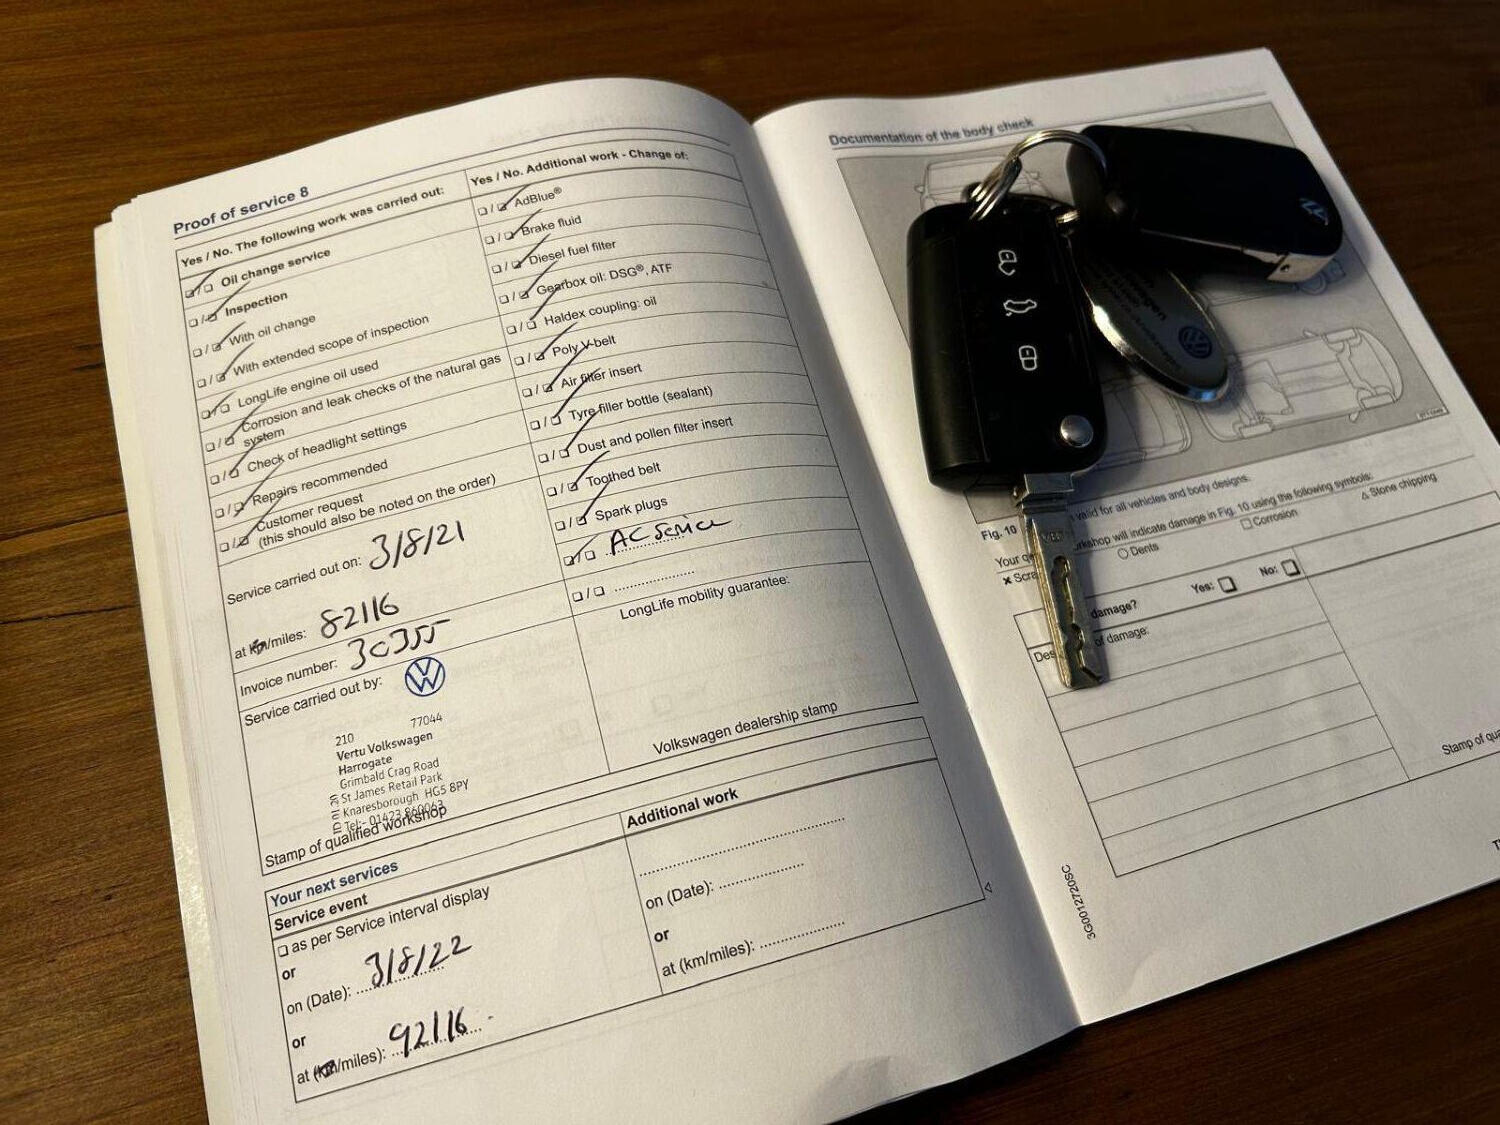 Proof of service 8
Yes / No. The following work was carried out:
Oil change service
Inspection
With oil change
With extended scope of inspection
LongLife engine oil used
Corrosion and leak checks of the natural gas
system
Check of headlight settings
Repairs recommended
Customer request
(this should also be noted on the order)
Service carried out on: 3/8/21
at km/miles: 82116
Invoice number: 30355
Service carried out by:
210 77044
Vertu Volkswagen
Harrogate
Grimbald Crag Road
St James Retail Park
Knaresborough HG5 8PY
Tel:- 01423 860063
Stamp of qualified workshop
Yes / No. Additional work - Change of:
AdBlue®
Brake fluid
Diesel fuel filter
Gearbox oil: DSG®, ATF
Haldex coupling: oil
Poly V-belt
Air filter insert
Tyre filler bottle (sealant)
Dust and pollen filter insert
Toothed belt
Spark plugs
AC Service
LongLife mobility guarantee:
Volkswagen dealership stamp
Your next services
Service event
as per Service interval display
or
on (Date): 3/8/22
or
at (km/miles): 92116
Additional work
on (Date):
or
at (km/miles):
Documentation of the body check
Fig. 10 valid for all vehicles and body designs.
Your workshop will indicate damage in Fig. 10 using the following symbols:
Dents Corrosion Stone chipping
damage? Yes: No:
of damage:
Stamp of
3G0012720SC